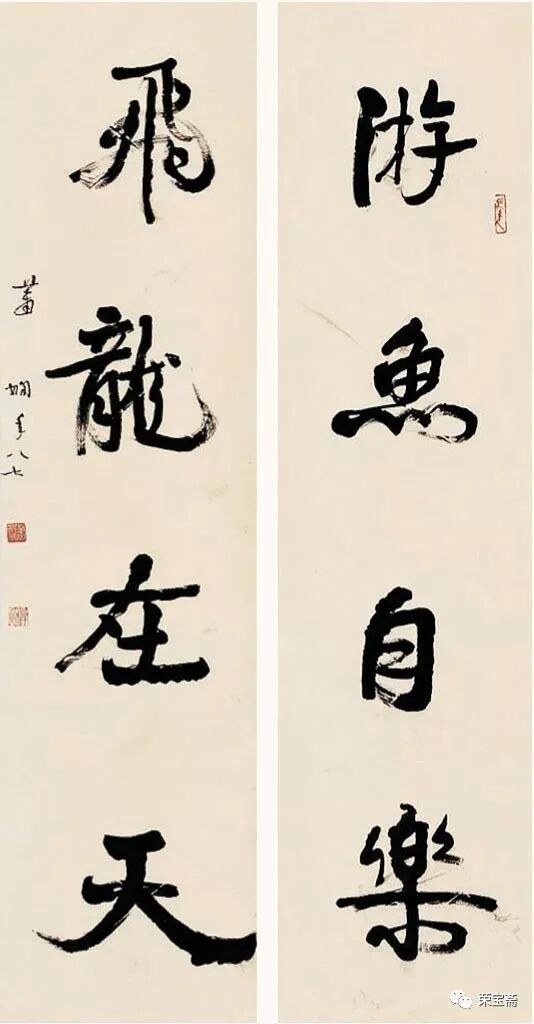 游魚自樂
飛龍在天
蕭嫻年八七
荣宝斋